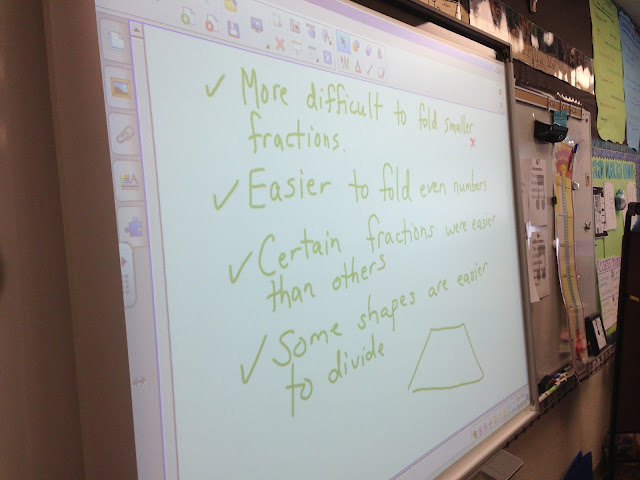 ✓ More difficult to fold smaller
fractions.
✓ Easier to fold even numbers
✓ Certain fractions were easier
than others
✓ Some shapes are easier
to divide